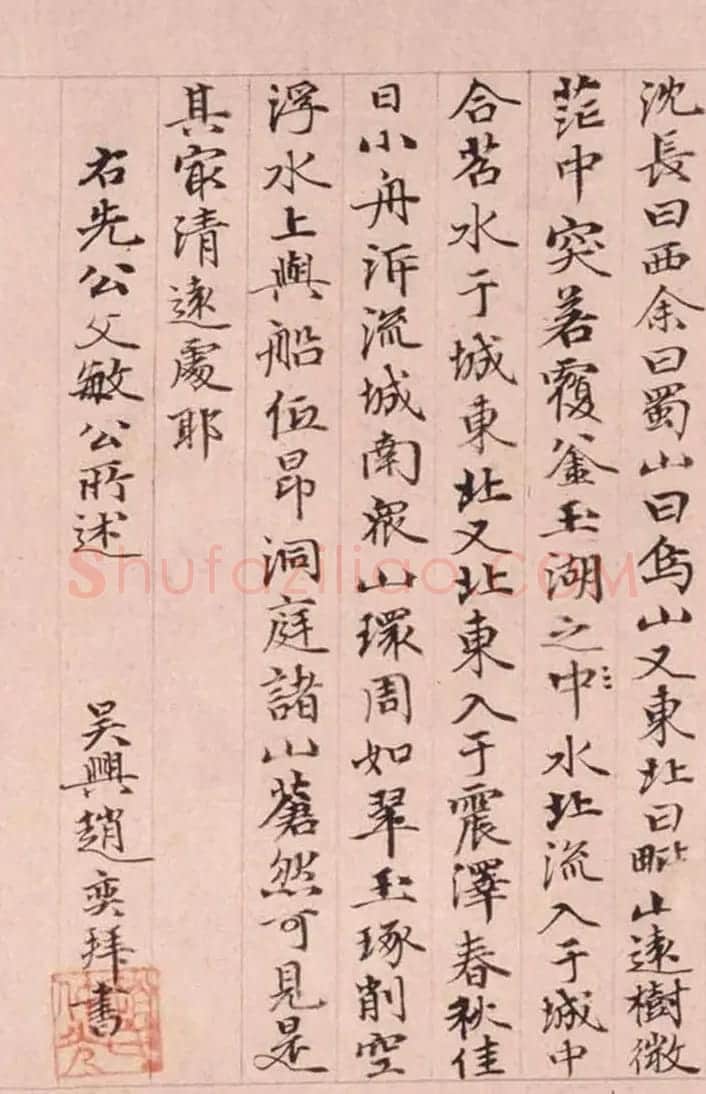 沈長曰西余曰蜀山曰烏山又東北曰毗山遠樹微
茫中突若覆釜玉湖之中水北流入于城中
合苕水于城東北又北東入于震澤春秋佳
日小舟泝流城南衆山環周如翠玉琢削空
浮水上與船低昂洞庭諸山蒼然可見是
其最清遠處耶
右先公文敏公所述 吳興趙奕拜書
Shufaziliao.COM